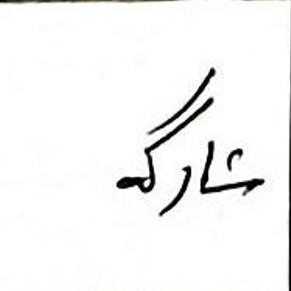 شارگہ